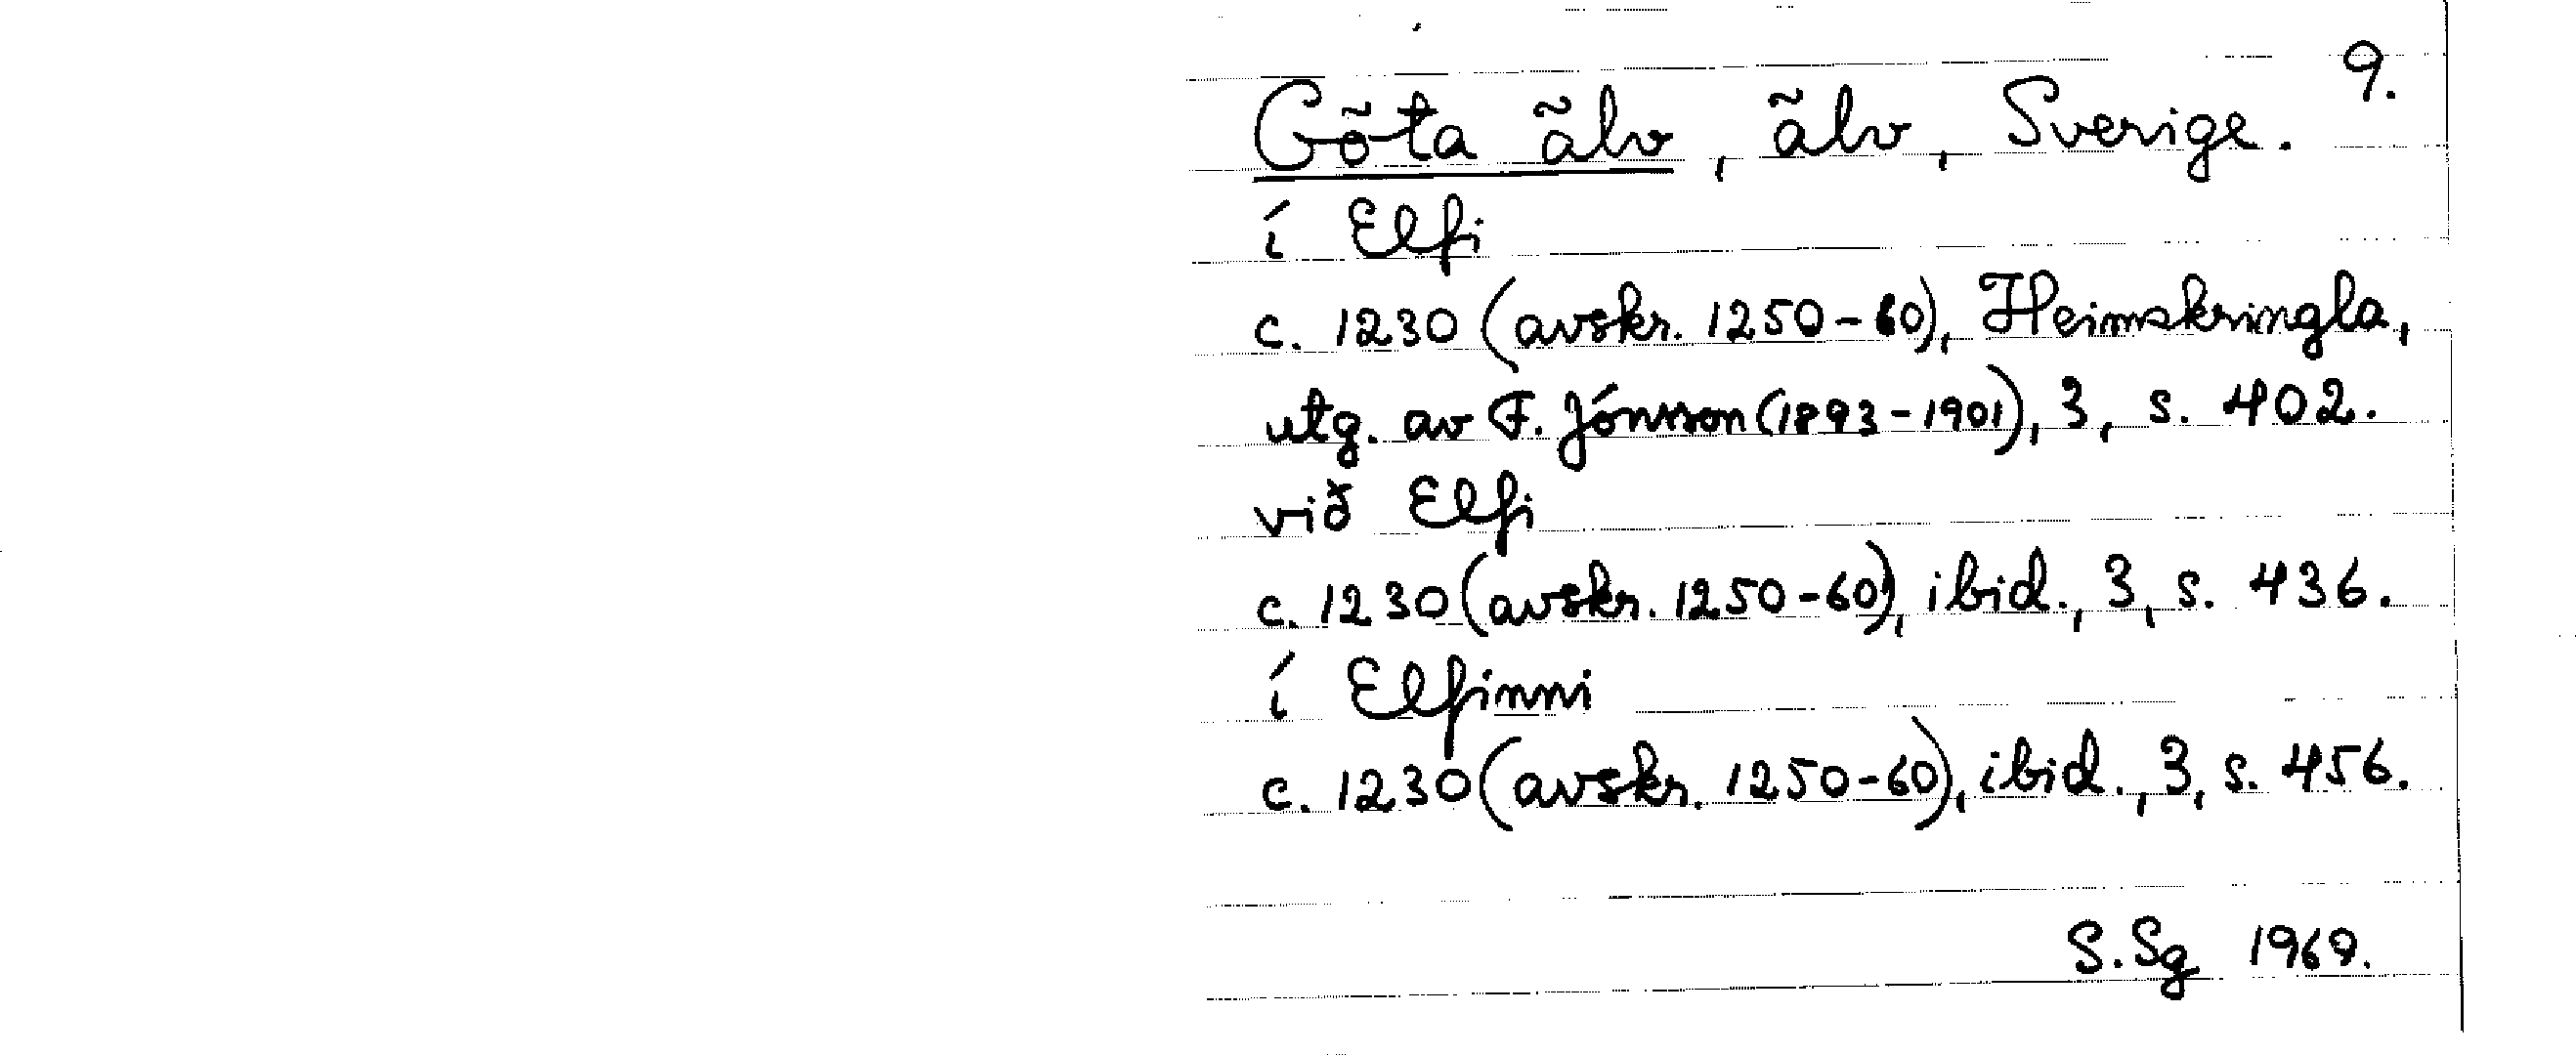 9.
Göta älv, älv, Sverige.
í Elfi
c. 1230 (avskr. 1250-60), Heimskringla,
utg. av F. Jónsson (1893-1901), 3, s. 402.
við Elfi
c. 1230 (avskr. 1250-60), ibid., 3, s. 436.
í Elfinni
c. 1230 (avskr. 1250-60), ibid., 3, s. 456.
S.Sg 1969.